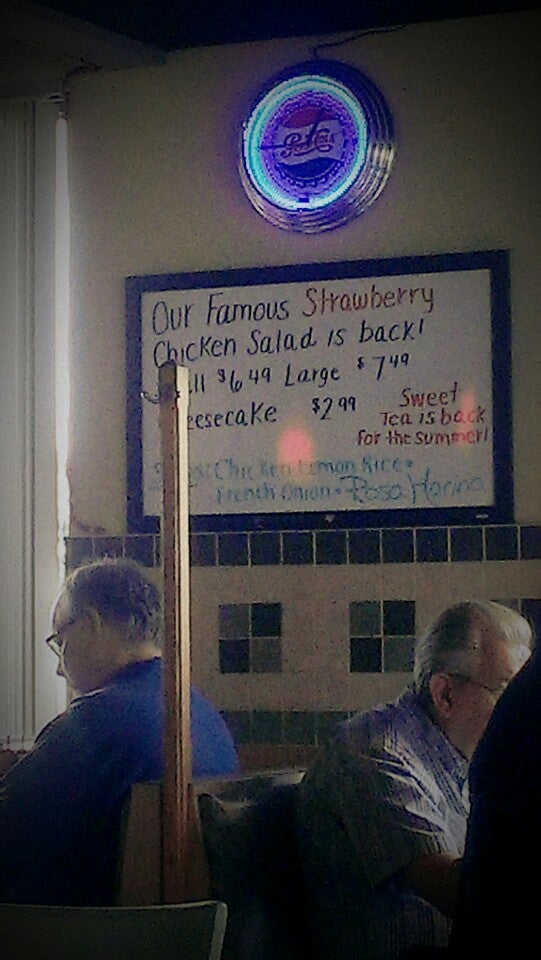 Pepsi-Cola
Our Famous Strawberry
Chicken Salad is back!
ll $6 49 Large $7 49
eesecake $2 99
Sweet
Tea is back
for the summer!
Chicken Lemon Rice •
French Onion •